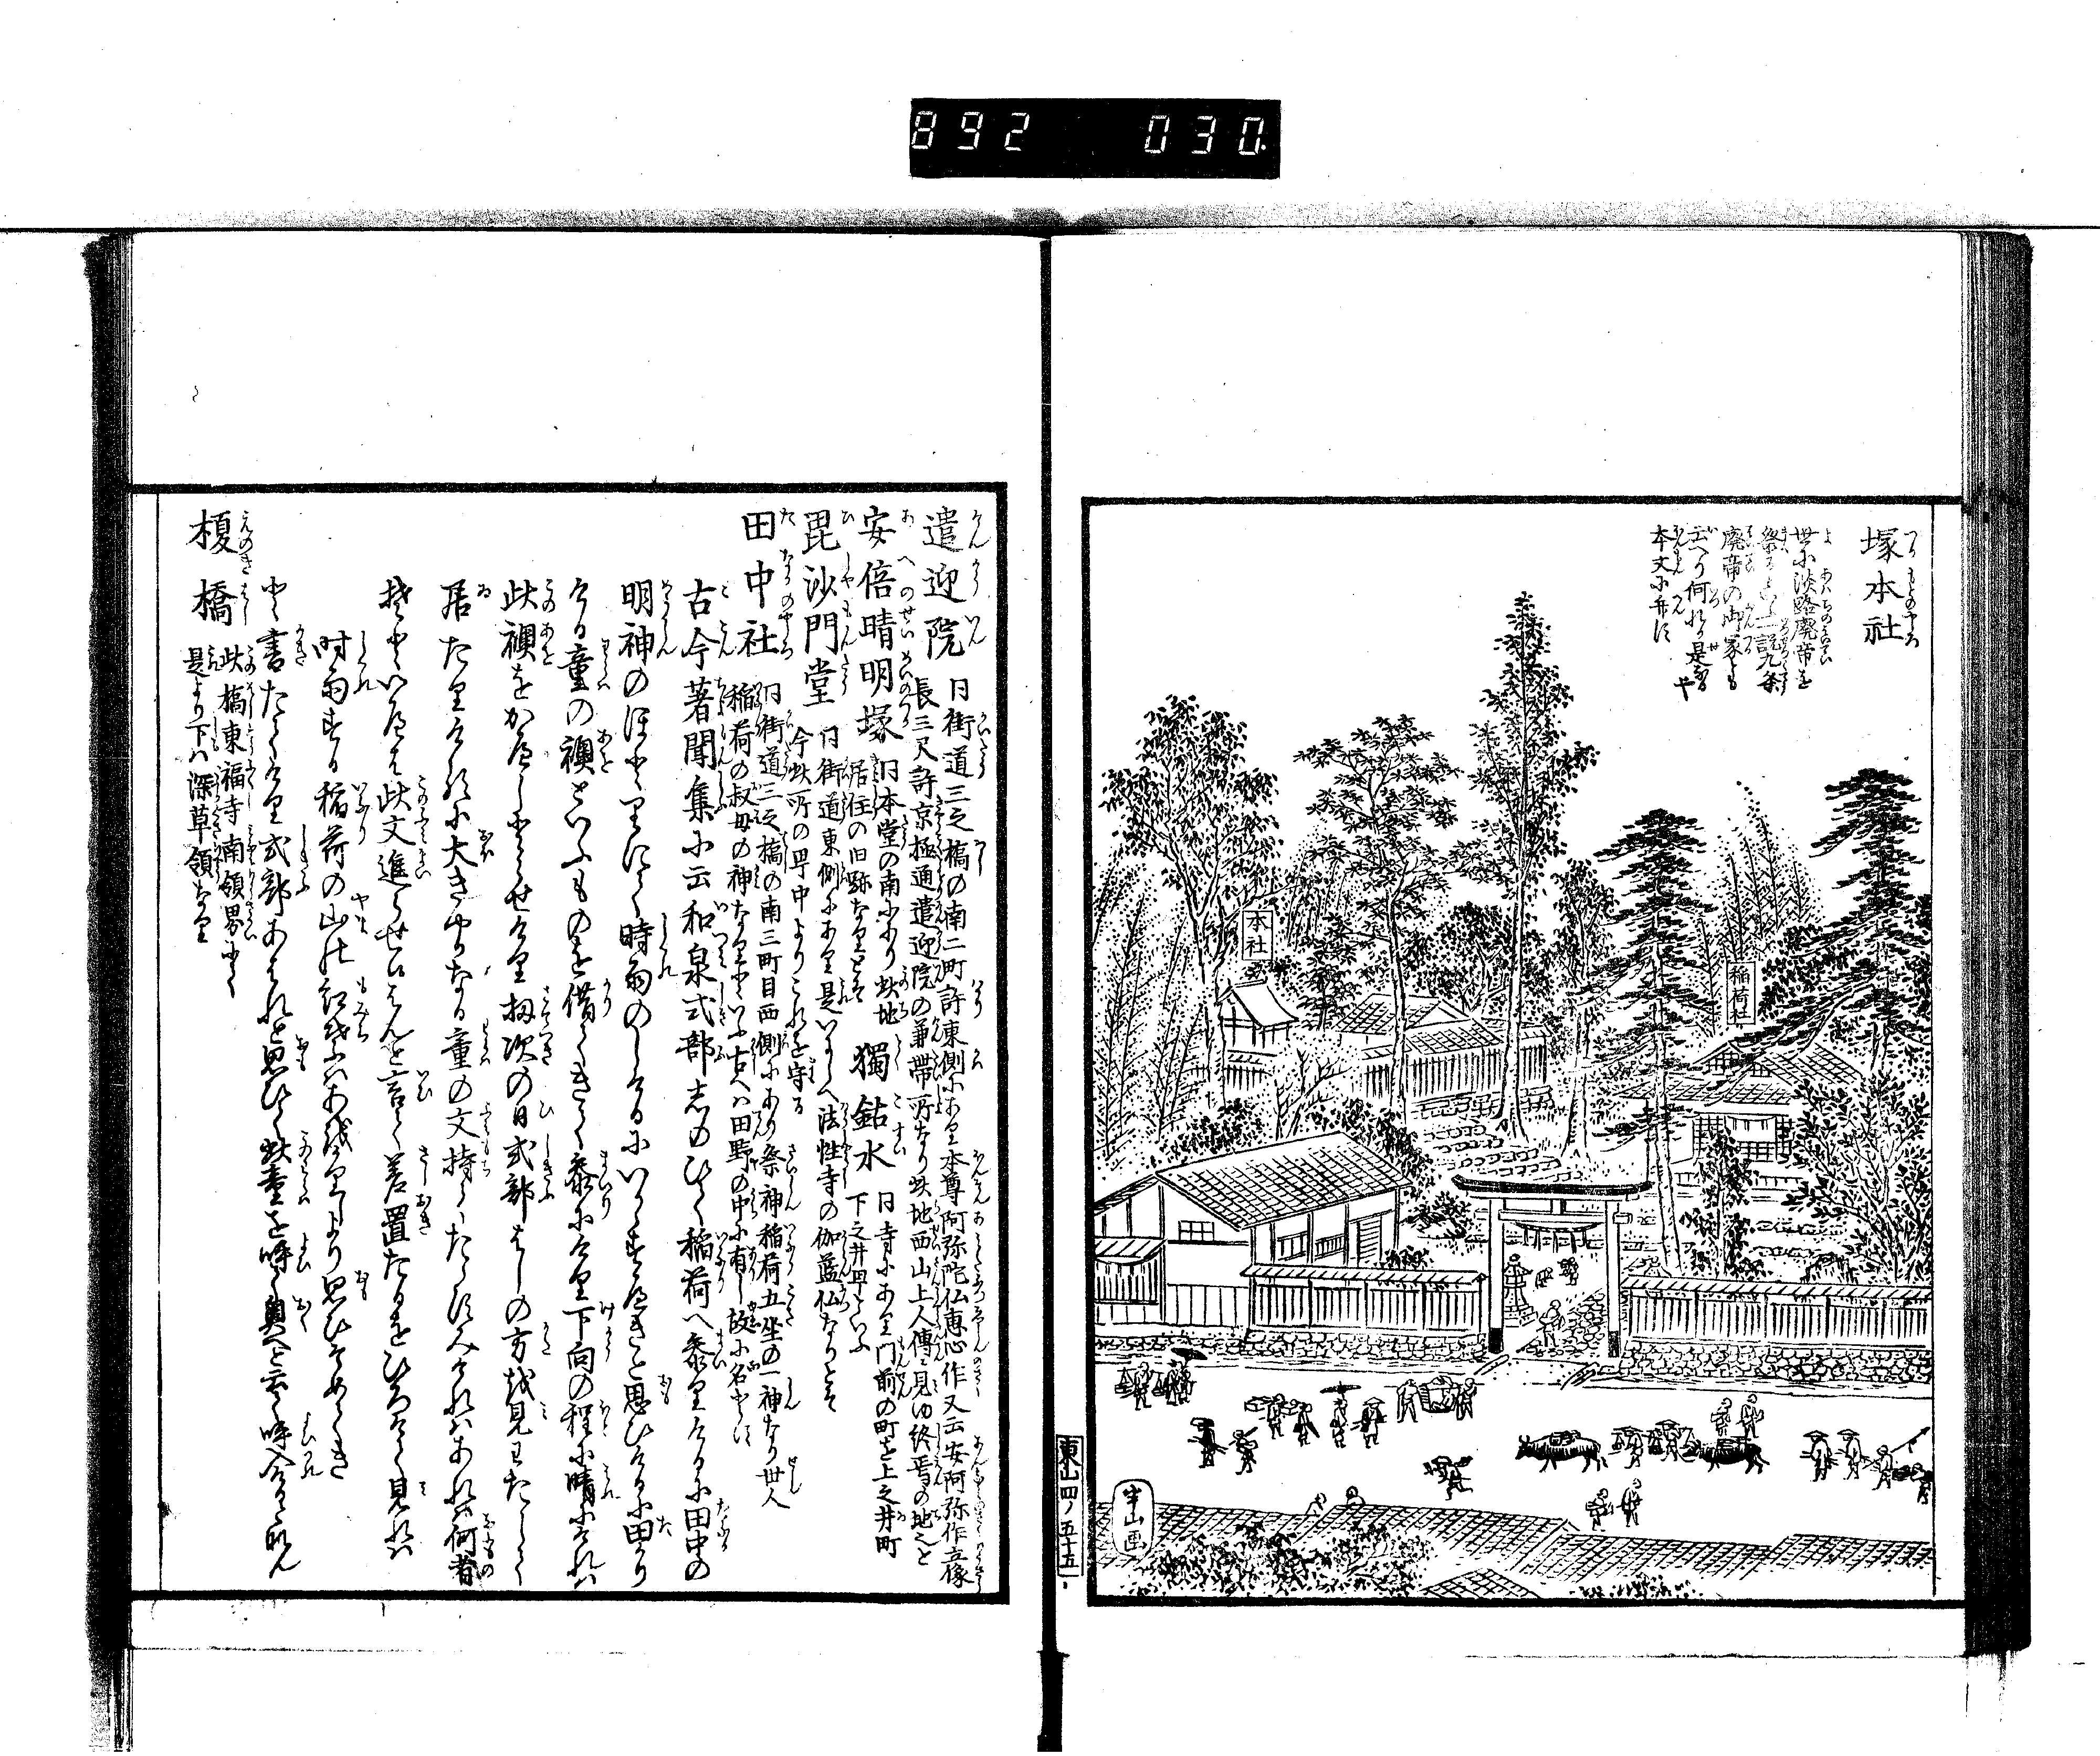 892 030
塚本社
世小淡路廃帝を
祭るといふ一説九条
廃帝の御冢とも
云へり何れか是なるや
本文に弁ず
本社
稲荷社
半山画
東山四ノ五十五
遣迎院
同街道三之橋の南二町許東側にあり本尊阿弥陀仏恵心作又云安阿弥作立像
長三尺許京極通遣迎院の兼帯所なり此地西山上人傳に見ゆ終焉の地也と
安倍晴明塚
同本堂の南にあり此地
居住の旧跡なりとぞ
獨鈷水
同寺にあり門前の町を上之井町
下之井町といふ
毘沙門堂
同街道東側にあり是いにしへ法性寺の伽藍仏なりとぞ
今此所の町中よりこれを守る
田中社
同街道三之橋の南三町目西側にあり祭神稲荷五坐の一神なり世人
稲荷の叔母の神なりといふ古へは田野の中に有し故に名とす
古今著聞集に云和泉式部志のびて稲荷へ参りけるに田中の
明神のほどにて時雨のしけるにいかがすべきと思ひけるに田かり
ける童の襖といふものを借りてきて参りにけり下向の程に晴にければ
此襖をかへしとらせけり扨次の日式部はしの方を見いだして
居たりけるに大きやかなる童の文持てたたずみければあれは何者
ぞといへば此文進らせ候はんと言て差置たるをひろげて見れば
時雨する稲荷の山のもみぢ葉はあをかりしより思ひそめてき
と書たりけり式部あはれと思ひて此童を呼て奥へと云て呼入けるとなん
榎橋
此橋東福寺南領界にて
是より下は深草領なり